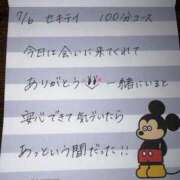 7/6 セキテイ 100分コース
今日は会いに来てくれて
ありがとう 一緒にいると
安心できて気づいたら
あっという間だった!!